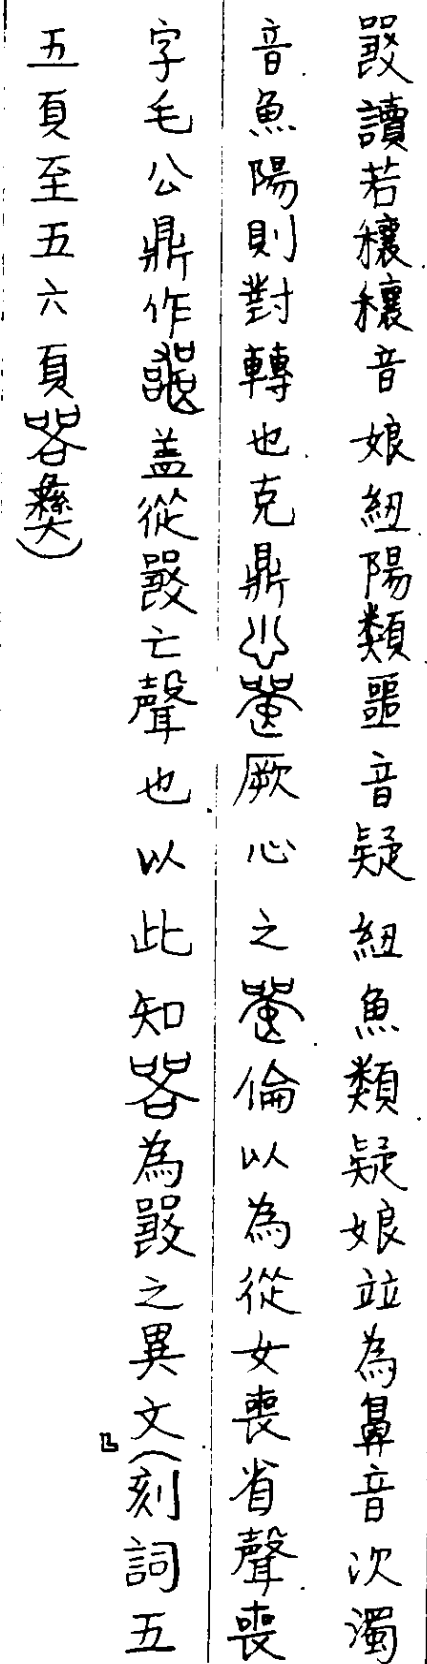 㗊讀若穰穰音娘紐陽類噩音疑紐魚類疑娘竝為鼻音次濁
音魚陽則對轉也克鼎厥心之倫以為從女喪省聲喪
字毛公鼎作蓋從亡聲也以此知為之異文」(刻詞五
五頁至五六頁彝)